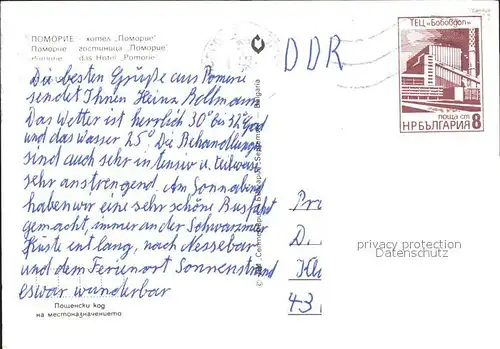 ПОМОРИЕ - хотел „Поморие"
Поморие гостиница „Поморие"
das Hotel „Pomorie"
DDR
ТЕЦ „Бобовдол"
поща ст
НР БЪЛГАРИЯ 8
Die besten Grüße aus Pomorie
sendet Ihnen Heinz Bollmann
Das Wetter ist herrlich 30° bis 32° Grad
und das Wasser 25°. Die Behandlungen
sind auch sehr intensiv u. teilweise
sehr anstrengend. Am Sonnabend
haben wir eine sehr schöne Busfahrt
gemacht, immer an der Schwarzmeer
Küste entlang, nach Nessebar
und dem Ferienort Sonnenstrand
es war wunderbar
Pr
D.
Kl
43
privacy protection
Datenschutz
Пощенски код
на местоназначението
Септември
Bulgaria